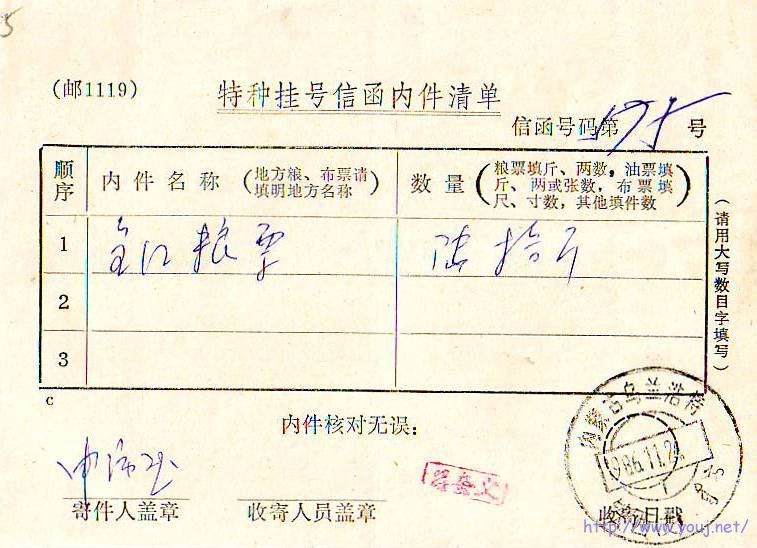 5
(邮1119)
特种挂号信函内件清单
信函号码第 号
顺序 内件名称 (地方粮、布票请填明地方名称) 数量 (粮票填斤、两数,油票填斤、两或张数,布票填尺、寸数,其他填件数)
1 全江粮票 陆拾斤
2
3
(请用大写数目字填写)
C
内件核对无误:
寄件人盖章 收寄人员盖章 收寄日戳
内蒙古乌兰浩特
1986.11.2
http://www.youj.net/